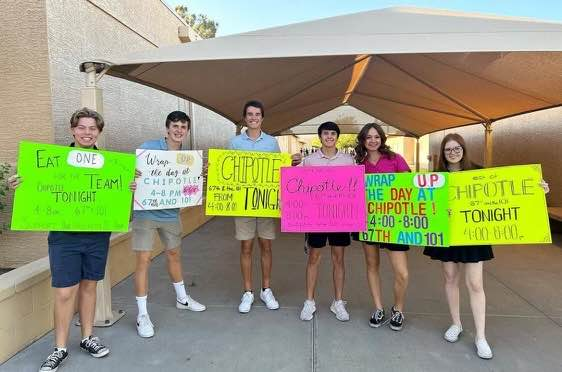 EAT ONE
FOR THE TEAM!
CHIPOTLE
TONIGHT
4-8pm 67th & 101
Wrap UP
the day at
CHIPOTLE
4-8 PM
67TH & 101
CHIPOTLE
67th & the 101
TONIGHT
FROM 4:00-8:00
Chipotle!!
4:00
8:00
TONIGHT
WRAP UP
THE DAY AT
CHIPOTLE!
4:00-8:00
67TH AND 101
CHIPOTLE
67th and the 101
TONIGHT
4:00-8:00